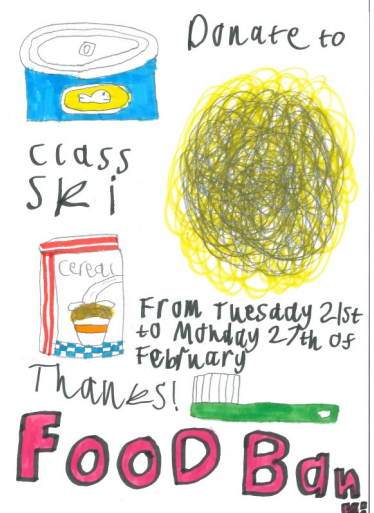 Donate to
class
SKi
cereal
From Tuesady 21st
to Monday 27th of
February
Thanks!
FOOD Ban
k!